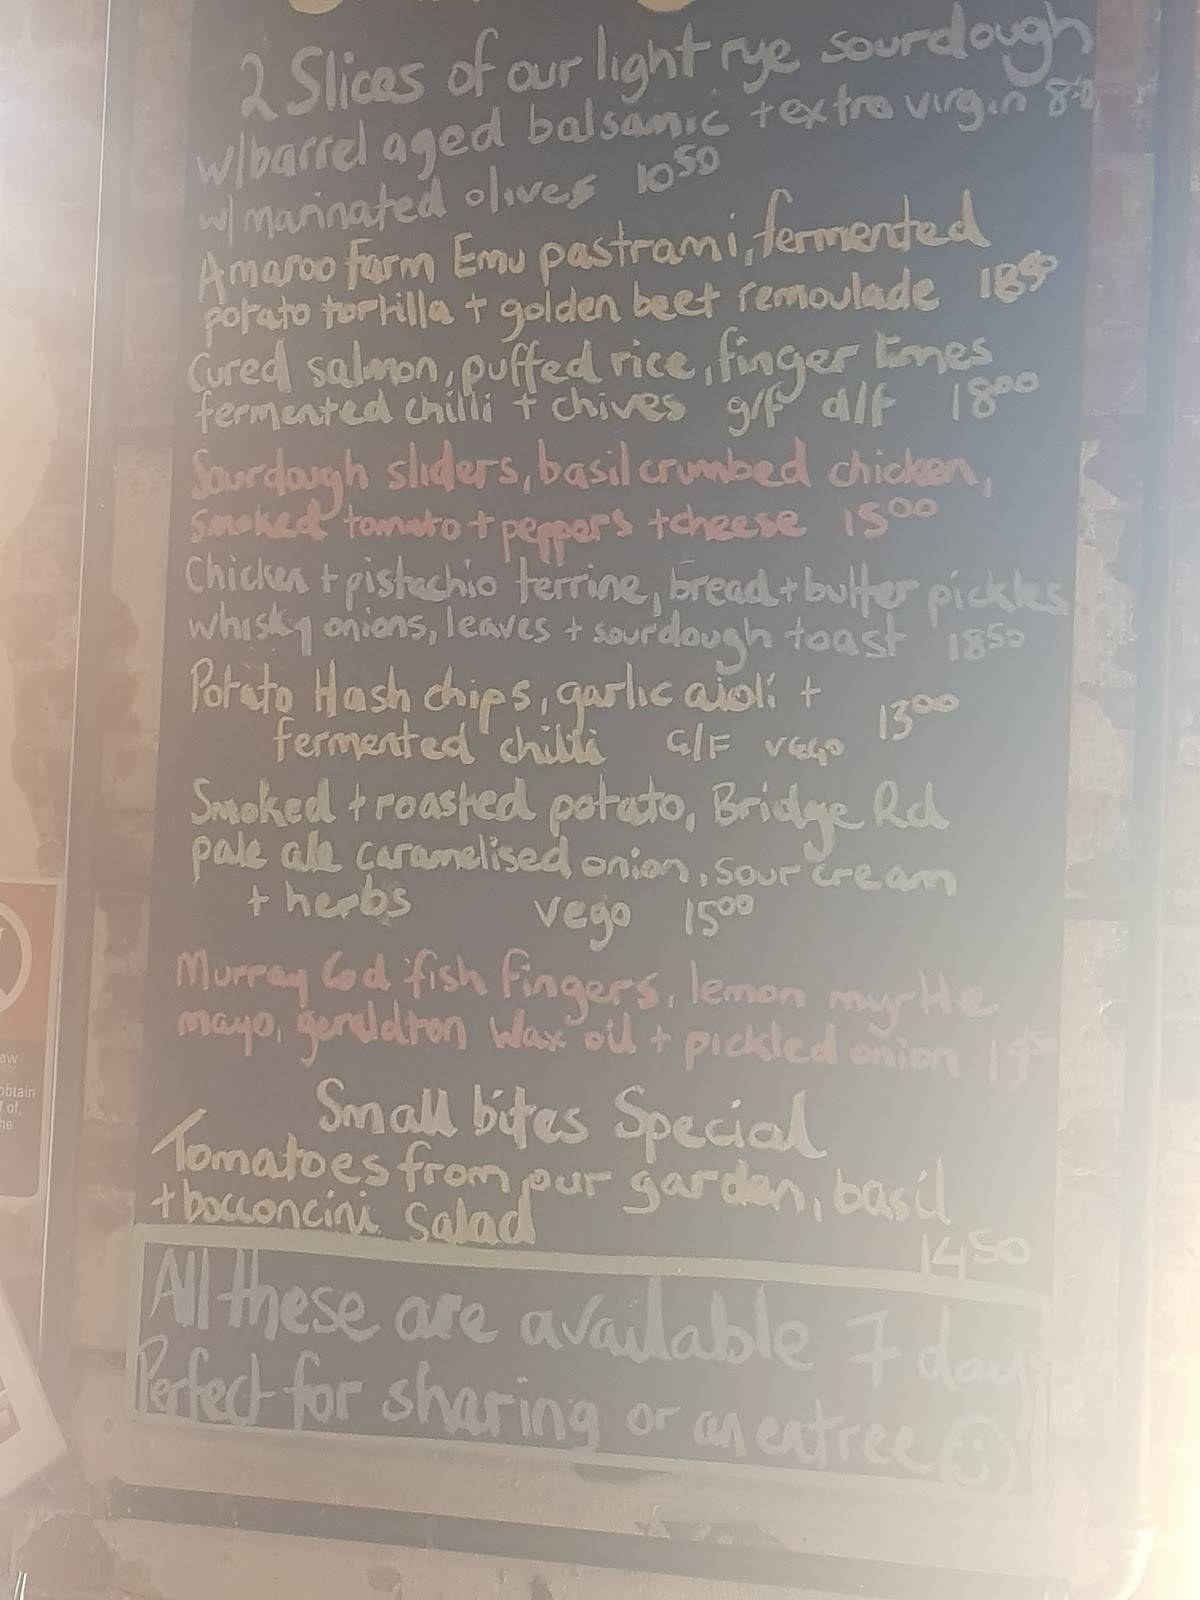 2 Slices of our light rye sourdough
w/barrel aged balsamic + extra virgin
w/ marinated olives 10⁵⁰
Amaroo Farm Emu pastrami, fermented
potato tortilla + golden beet remoulade 18⁵⁰
Cured salmon, puffed rice, finger limes
fermented chilli + chives g/f d/f 18⁰⁰
Sourdough sliders, basil crumbed chicken,
smoked tomato + peppers + cheese 15⁰⁰
Chicken + pistachio terrine, bread + butter pickles
whisky onions, leaves + sourdough toast 18⁵⁰
Potato Hash chips, garlic aioli + 13⁰⁰
fermented chilli G/F vego
Smoked + roasted potato, Bridge Rd
pale ale caramelised onion, sour cream
+ herbs vego 15⁰⁰
Murray Cod fish fingers, lemon myrtle
mayo, geraldton wax oil + pickled onion
Small bites Special
Tomatoes from our garden, basil
+ bocconcini salad
14⁵⁰
All these are available 7 days
Perfect for sharing or an entree
aw
obtain
of,
he